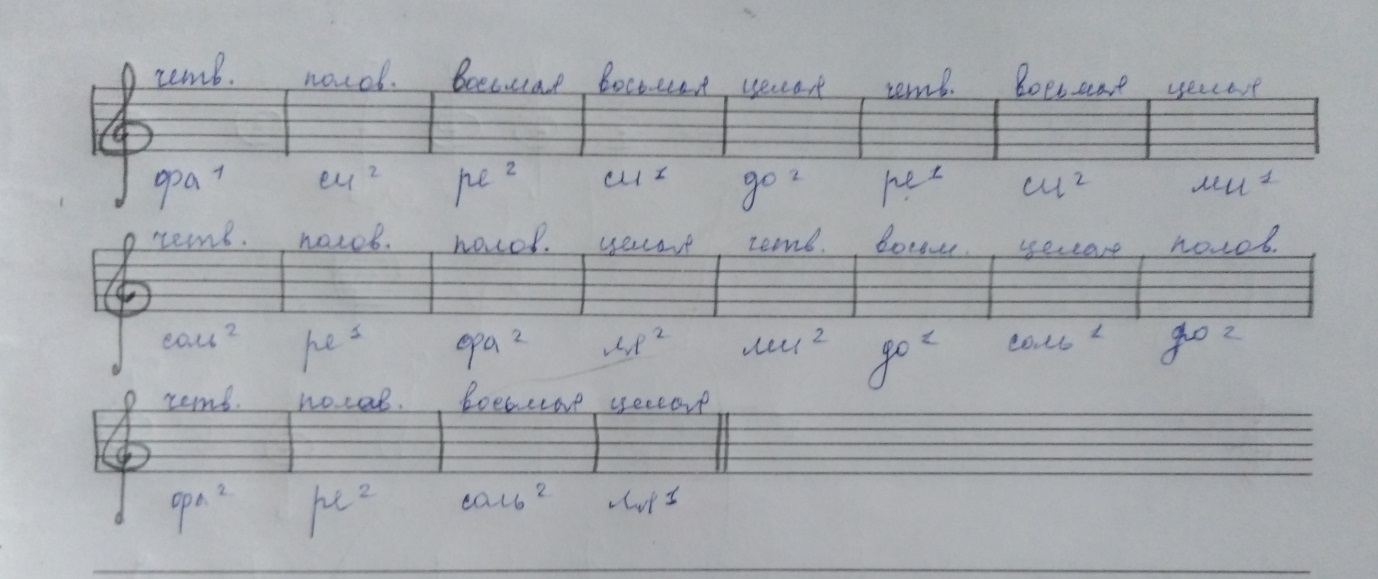 четв. полов. восьмая восьмая целая четв. восьмая целая
фа 1 си 2 ре 2 си 1 до 2 ре 1 си 2 ми 1
четв. полов. полов. целая четв. восьм. целая полов.
соль 2 ре 1 фа 2 ля 2 ми 2 до 1 соль 1 до 2
четв. полов. восьмая целая
фа 2 ре 2 соль 2 ля 1